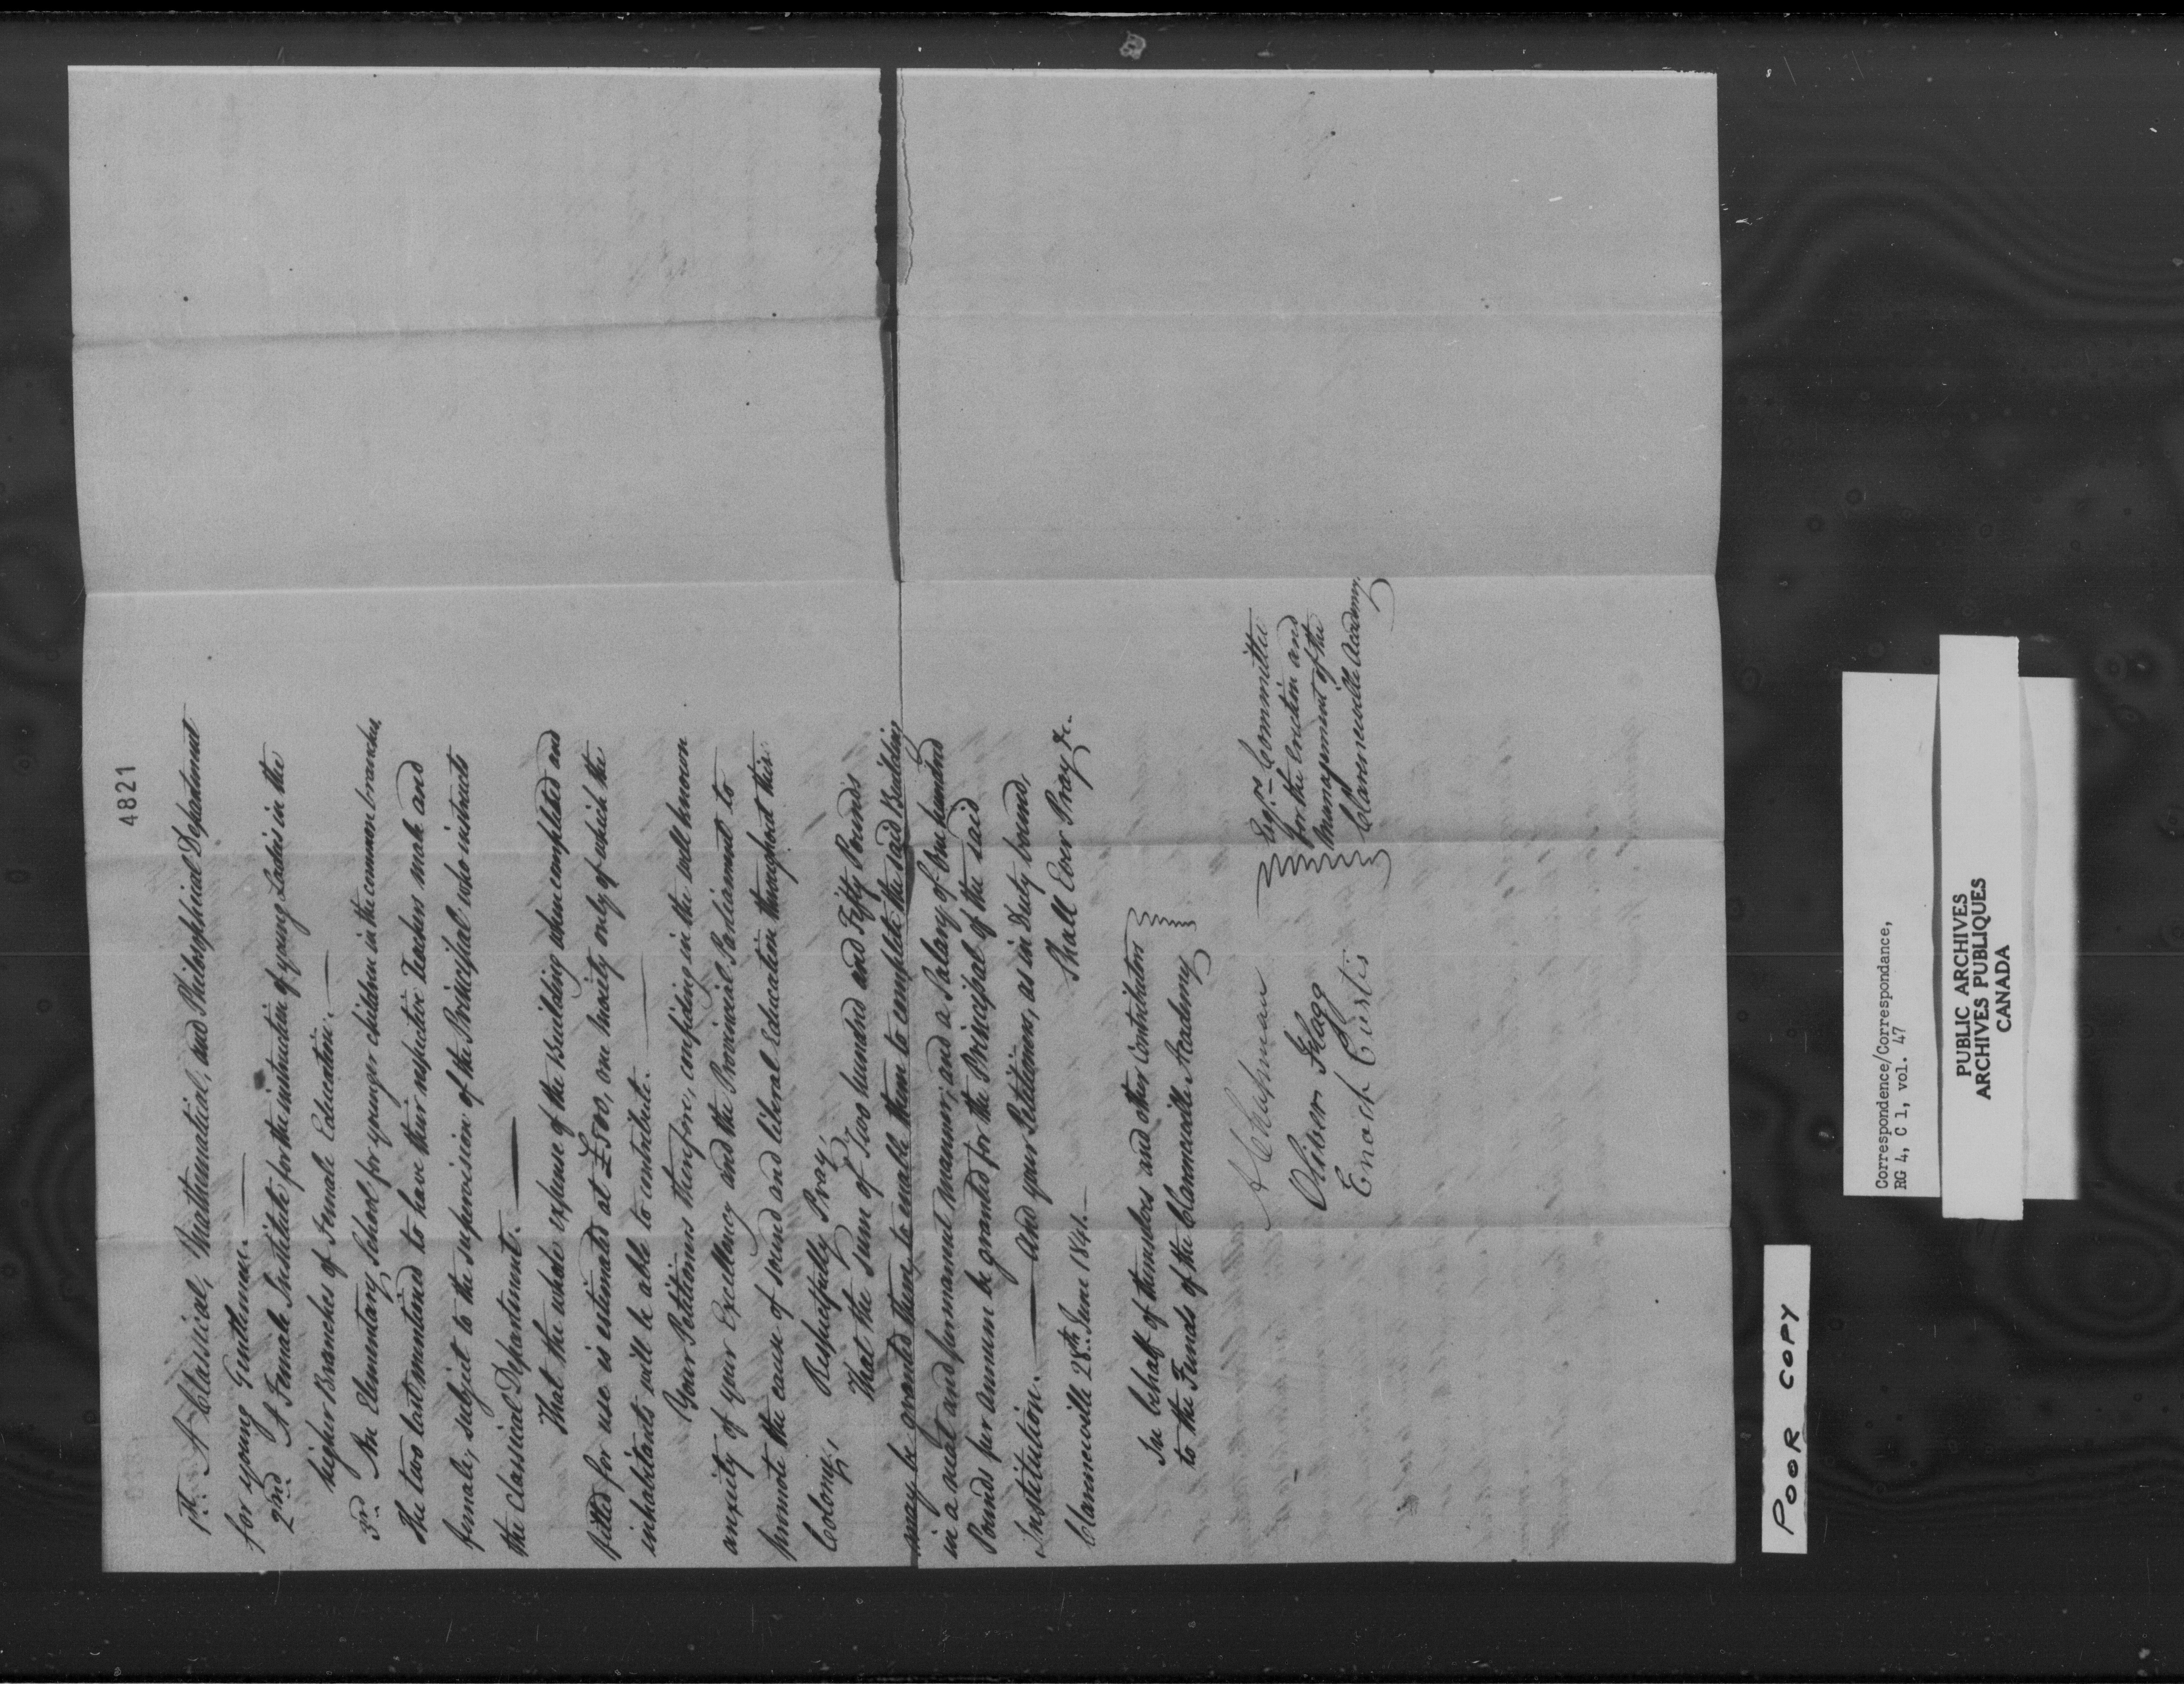 4821
1st. A Classical, Mathematical, and Philosophical Department
for young Gentlemen.
2nd. A Female Institute for the instruction of young Ladies in the
higher Branches of Female Education.
3rd. An Elementary School for younger children in the common branches,
The two last mentioned to have their respective Teachers male and
female, subject to the supervision of the Principal who instructs
the Classical Department.
That the whole expense of the Building when completed and
fitted for use is estimated at £500, one moiety only of which the
inhabitants will be able to contribute.
Your Petitioners therefore, confiding in the well known
anxiety of your Excellency and the Provincial Parliament to
promote the cause of sound and liberal Education throughout this
Colony,
Respectfully Pray,
That the Sum of Two hundred and Fifty Pounds
may be granted them, to enable them to complete the said Building
in a neat and permanent manner; and a Salary of One hundred
Pounds per annum be granted for the Principal of the said
Institution. And your Petitioners, as in Duty bound,
Shall Ever Pray &c.
Clarenceville 28th June 1841.
In behalf of themselves and other Contributors
to the Funds of the Clarenceville Academy
A Chapman
Oliver Flagg
Enoch Curtis
Esqrs. Committee
for the Erection and
Management of the
Clarenceville Academy.
POOR COPY
Correspondence/Correspondance,
RG 4, C 1, vol. 47
PUBLIC ARCHIVES
ARCHIVES PUBLIQUES
CANADA